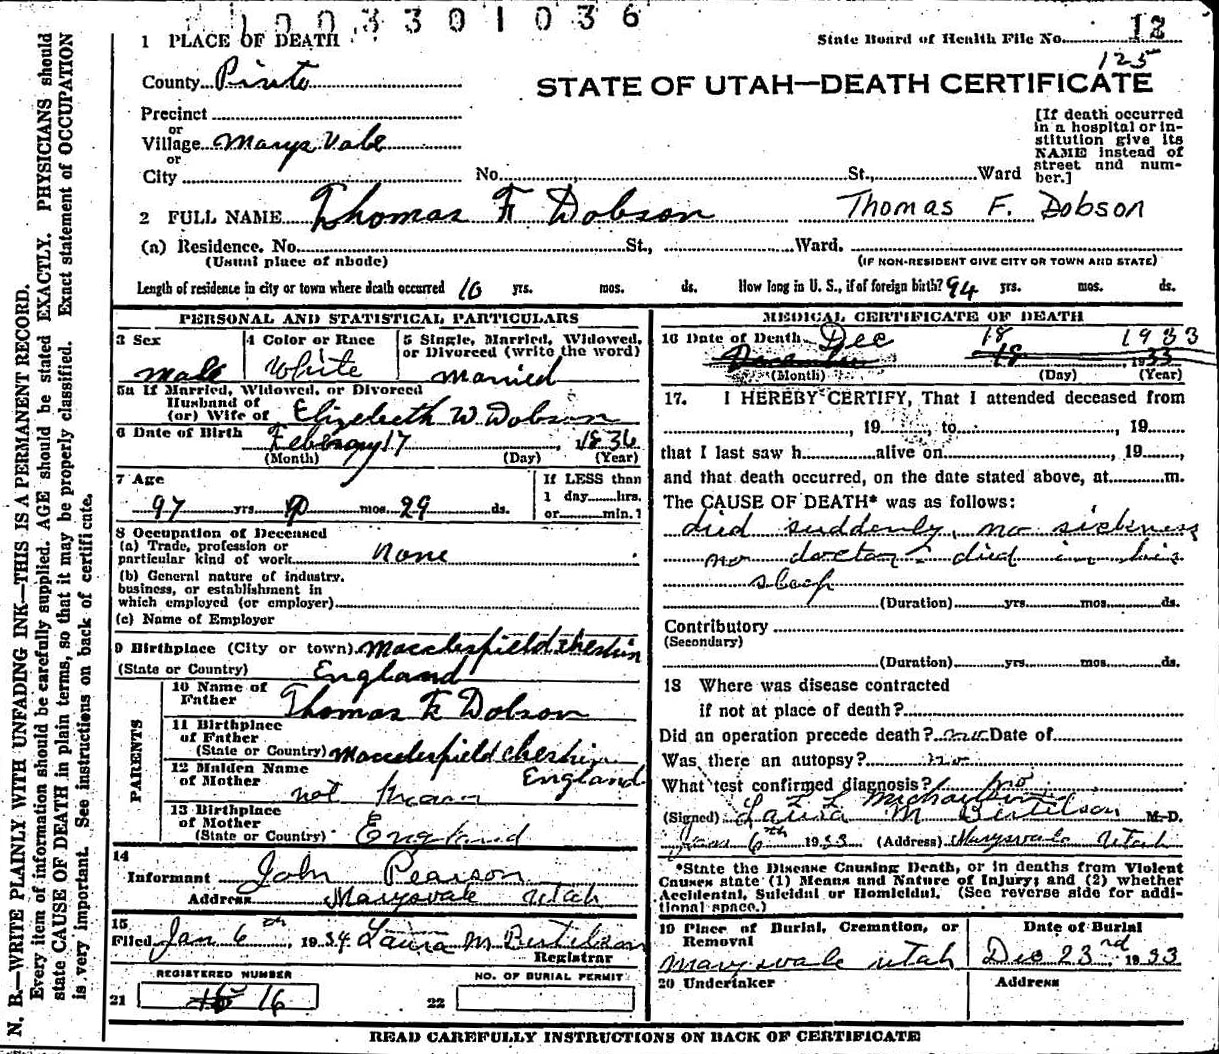 1003301036
1 PLACE OF DEATH
State Board of Health File No. 12
125
County Piute
STATE OF UTAH—DEATH CERTIFICATE
Precinct
or
Village Marys Vale
or
City No. St., Ward
[If death occurred
in a hospital or in-
stitution give its
NAME instead of
street and num-
ber.]
2 FULL NAME Thomas F Dobson Thomas F. Dobson
(a) Residence. No. St., Ward.
(Usual place of abode) (IF NON-RESIDENT GIVE CITY OR TOWN AND STATE)
Length of residence in city or town where death occurred 10 yrs. mos. ds. How long in U. S., if of foreign birth? 94 yrs. mos. ds.
PERSONAL AND STATISTICAL PARTICULARS
3 Sex
Male
4 Color or Race
White
5 Single, Married, Widowed,
or Divorced (write the word)
Married
5a If Married, Widowed, or Divorced
Husband of
(or) Wife of Elizebeth W Dobson
6 Date of Birth
Febuary 17 1836
(Month) (Day) (Year)
7 Age
97 yrs. 10 mos. 29 ds.
If LESS than
1 day hrs.
or min.
8 Occupation of Deceased
(a) Trade, profession or
particular kind of work none
(b) General nature of industry.
business, or establishment in
which employed (or employer)
(c) Name of Employer
9 Birthplace (City or town) Macclesfield Cheshire
(State or Country) England
PARENTS
10 Name of
Father Thomas F Dobson
11 Birthplace
of Father
(State or Country) Macclesfield Cheshire
England
12 Maiden Name
of Mother not known
13 Birthplace
of Mother
(State or Country) England
14
Informant John Pearson
Address Marysvale Utah
15
Filed Jan 6th, 1934 Laura M Bertelson
Registrar
REGISTERED NUMBER
21 16
NO. OF BURIAL PERMIT
22
MEDICAL CERTIFICATE OF DEATH
16 Date of Death Dec 18 1933
December 18 1933
(Month) (Day) (Year)
17. I HEREBY CERTIFY, That I attended deceased from
, 19 , to , 19
that I last saw h alive on , 19 ,
and that death occurred, on the date stated above, at m.
The CAUSE OF DEATH* was as follows:
died suddenly, no sickness
no doctor - died in his
sleep
(Duration) yrs. mos. ds.
Contributory
(Secondary)
(Duration) yrs. mos. ds.
18 Where was disease contracted
if not at place of death?
Did an operation precede death? no Date of
Was there an autopsy? no
What test confirmed diagnosis? no
(Signed) Laura M Bertelson M.D.
Jan 6th 1933 (Address) Marysvale Utah
*State the Disease Causing Death, or in deaths from Violent
Causes state (1) Means and Nature of Injury; and (2) whether
Accidental, Suicidal or Homicidal. (See reverse side for addi-
tional space.)
19 Place of Burial, Cremation, or
Removal
Marysvale Utah
Date of Burial
Dec 23rd 1933
20 Undertaker Address
READ CAREFULLY INSTRUCTIONS ON BACK OF CERTIFICATE
N. B.—WRITE PLAINLY WITH UNFADING INK—THIS IS A PERMANENT RECORD.
Every item of information should be carefully supplied. AGE should be stated EXACTLY. PHYSICIANS should
state CAUSE OF DEATH in plain terms, so that it may be properly classified. Exact statement of OCCUPATION
is very important. See instructions on back of certificate.